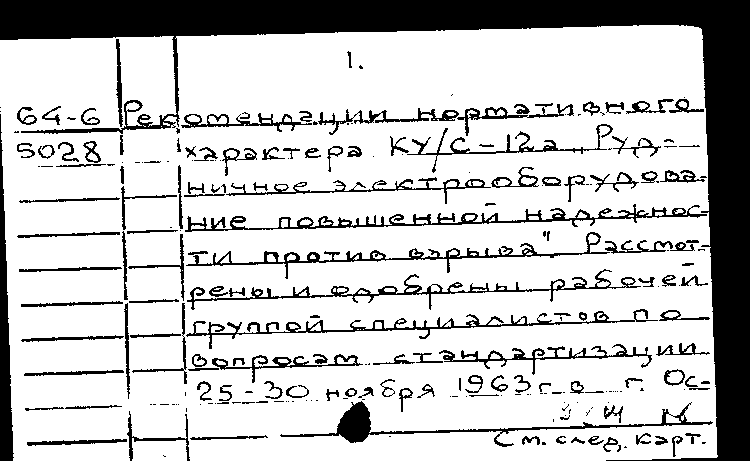 1.
64-6 Рекомендации нормативного
5028 характера КУ/С-12а „Руд-
ничное электрооборудова-
ние повышенной надежнос-
ти против взрыва". Рассмот-
рены и одобрены рабочей
группой специалистов по
вопросам стандартизации
25-30 ноября 1963 г. в г. Ос-
См. след. карт.